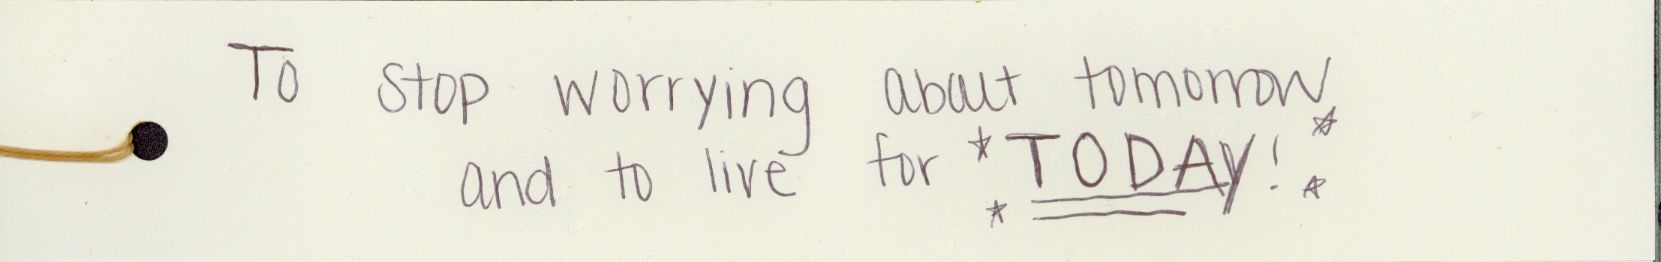 To stop worrying about tomorrow
and to live for *TODAY!*